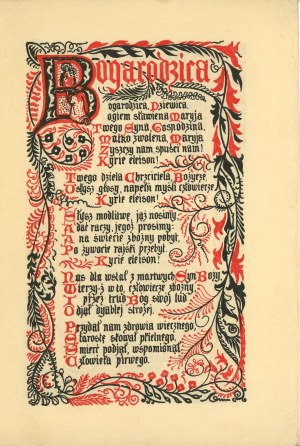 Bogarodzica
Bogarodzica, Dziewica,
Bogiem sławiena Maryja
Twego Syna, Gospodzina,
Matko zwolena, Maryja
Zyszczy nam, spuści nam!
Kyrie eleison!
Twego dziela Chrzciciela, Bożycze,
Usłysz głosy, napełń myśli człowiecze.
Słysz modlitwę, jąż nosimy,
dać raczy, jegoż prosimy:
na świecie zbożny pobyt,
Po żywocie rajski przebyt
Kyrie eleison!
Nas dla wstał z martwych Syn Boży
Wierzyż w to, człowiecze zbożny,
przez trud Bóg swój lud
Odjął dyablej strożej.
Przydał nam zdrowia wiecznego,
Starostę skował pkielnego,
Śmierć podjął, wspomionął
Człowieka pirwego.